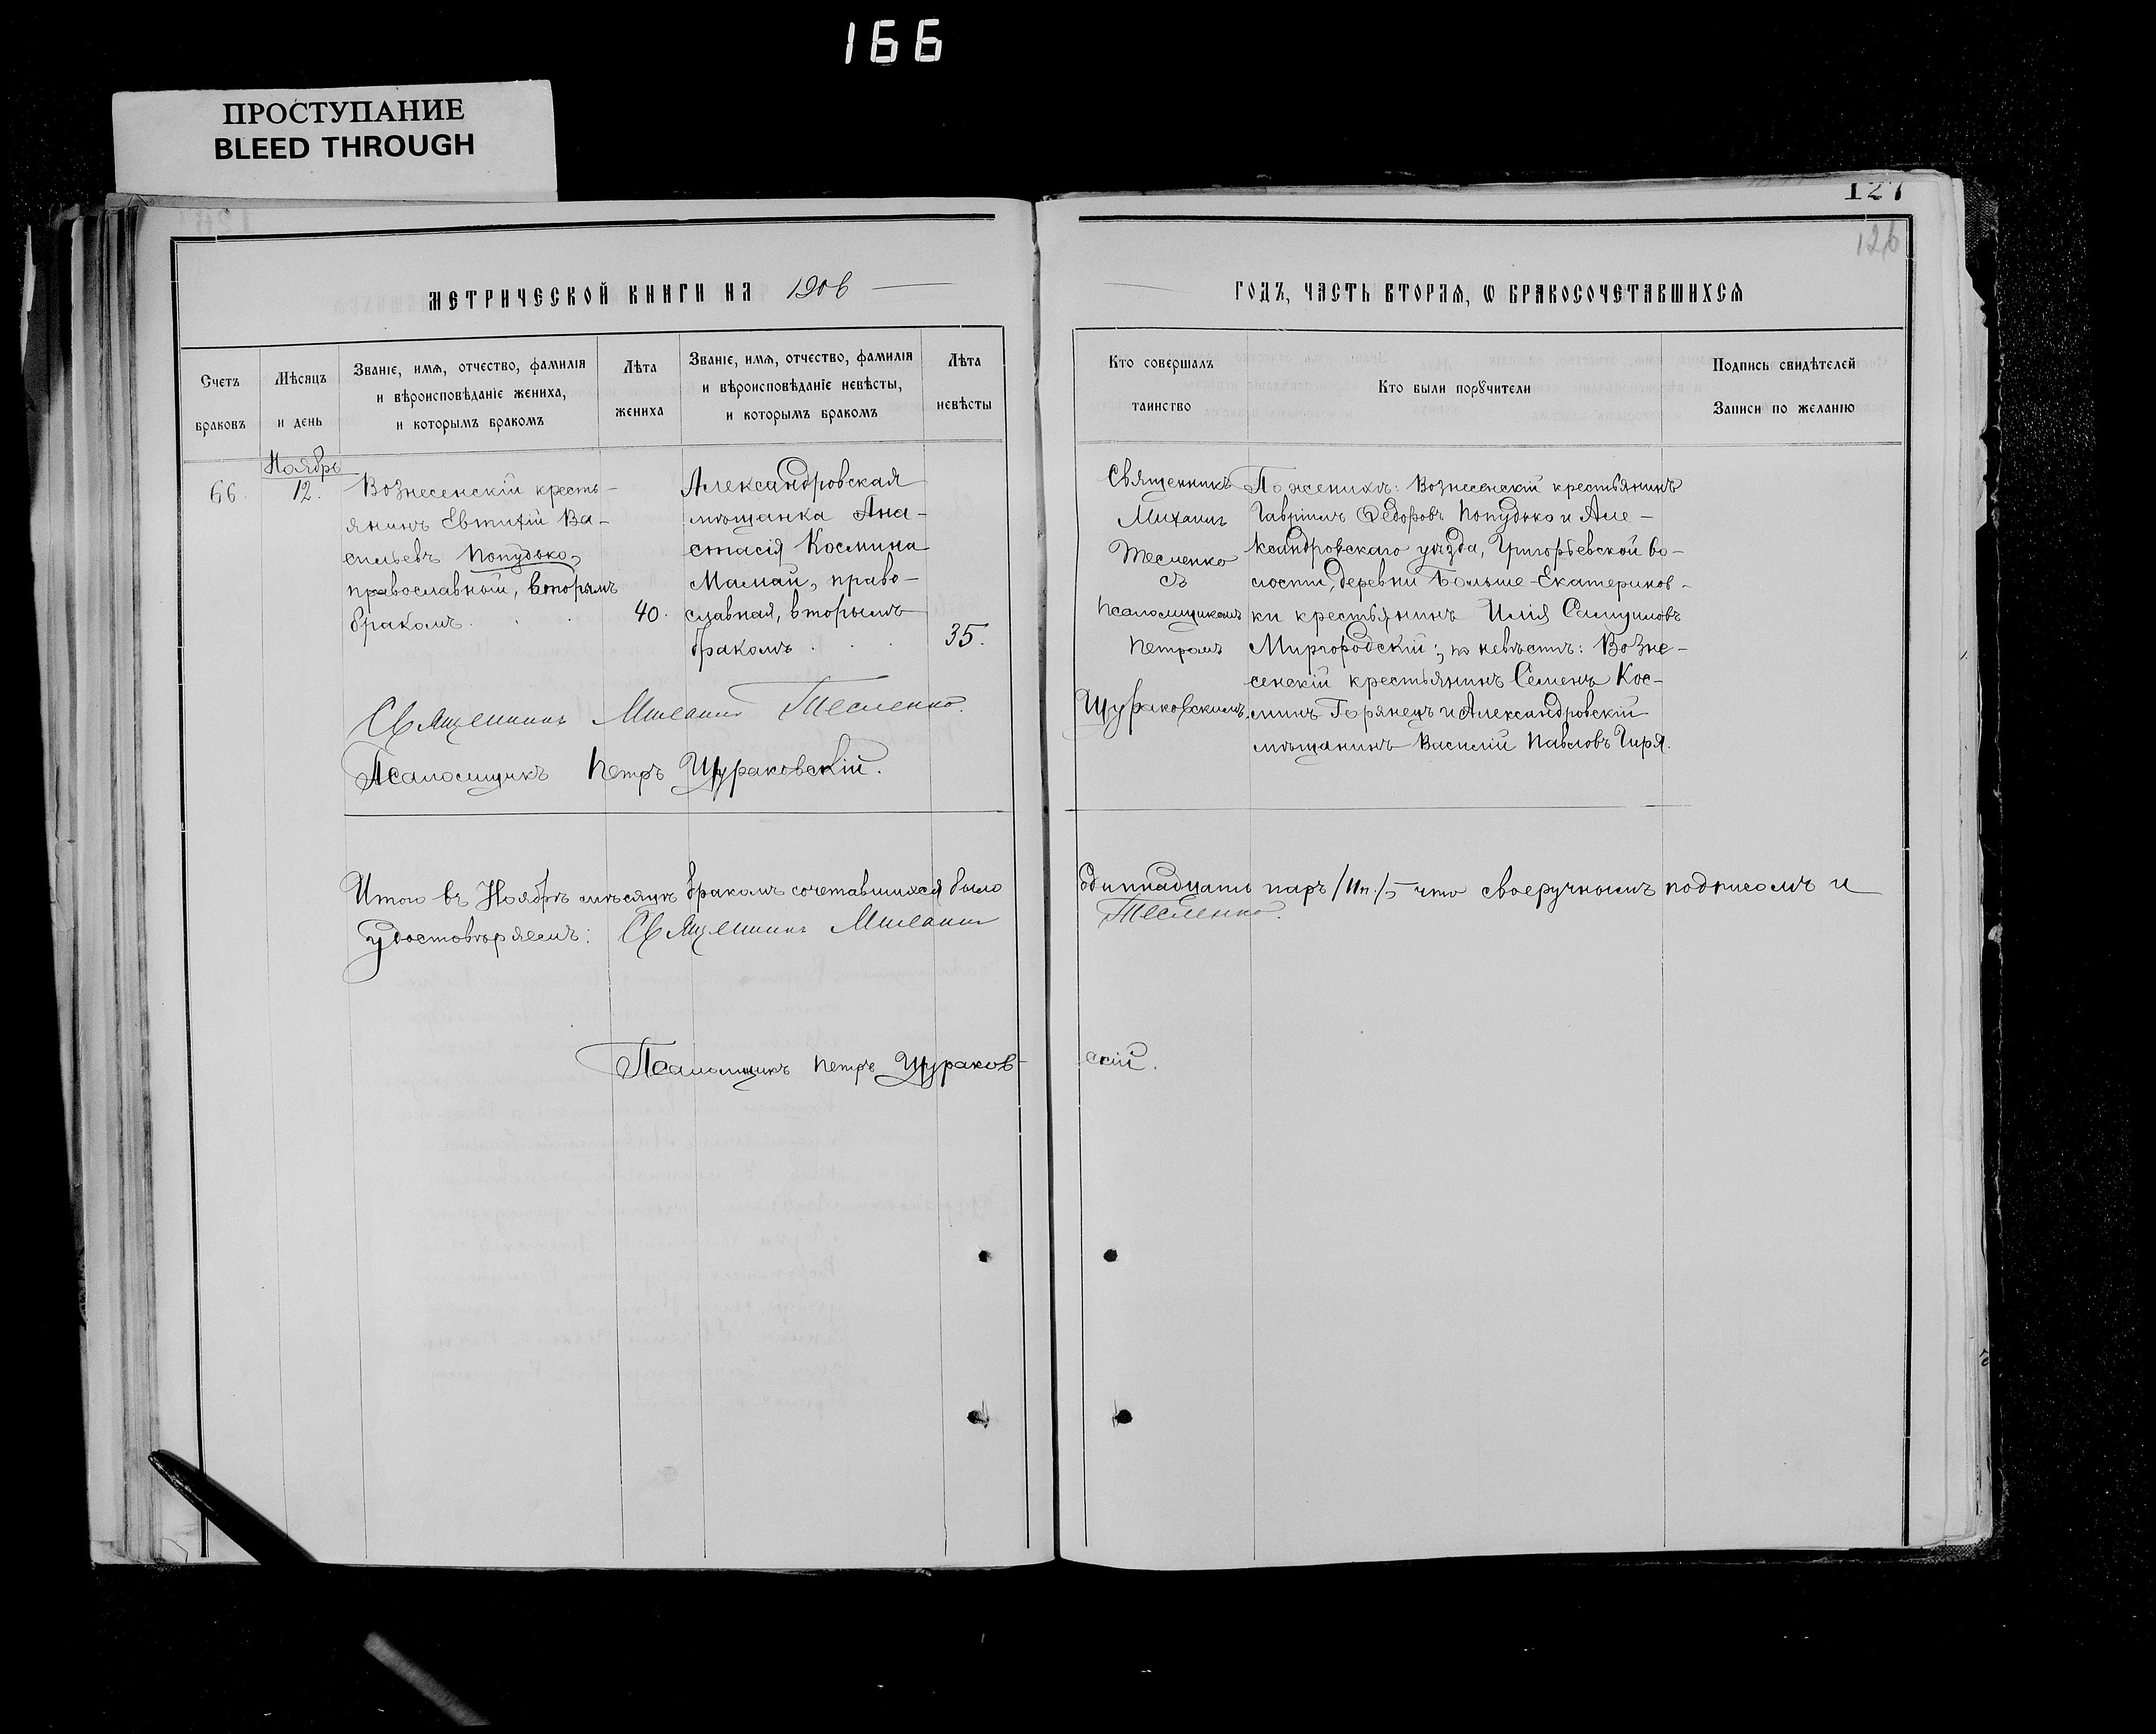 166
ПРОСТУПАНИЕ
BLEED THROUGH
127
126
МЕТРИЧЕСКОЙ КНИГИ НА 1906
ГОДЪ, ЧАСТЬ ВТОРАЯ, Ѡ БРАКОСОЧЕТАВШИХСЯ
Счетъ
браковъ
Мѣсяцъ
и день
Званіе, имя, отчество, фамилія
и вѣроисповѣданіе жениха,
и которымъ бракомъ
Лѣта
жениха
Званіе, имя, отчество, фамилія
и вѣроисповѣданіе невѣсты,
и которымъ бракомъ
Лѣта
невѣсты
Кто совершалъ
таинство
Кто были порꙋчители
Подпись свидѣтелей
Записи по желанію
66.
Ноябрь
12.
Вознесенскій кресть-
янинъ Евтихій Ва-
сильевъ Попудько,
православный, вторымъ
бракомъ. . .
40.
Александровская
мѣщанка Ана-
стасія Космина
Мамай, право-
славная, вторымъ
бракомъ . . .
35.
Священникъ
Михаилъ
Тесленко
съ
псаломщикомъ
Петромъ
Щураковскимъ.
По женихѣ: Вознесенскій крестьянинъ
Гавріилъ Ѳедоровъ Попудько и Але-
ксандровскаго уѣзда, Григорьевской во-
лости, деревни Больше-Екатеринов-
ки крестьянинъ Илія Самуиловъ
Миргородскій; по невѣстѣ: Возне-
сенскій крестьянинъ Семенъ Кос-
минъ Горянецъ и Александровскій
мѣщанинъ Василій Павловъ Гиря.
Священникъ Михаилъ Тесленко.
Псаломщикъ Петръ Щураковскій.
Итого въ Ноябрѣ мѣсяцѣ бракомъ сочетавшихся было одиннадцать паръ /11п./, что своеручнымъ подписомъ и
удостовѣряемъ: Священникъ Михаилъ Тесленко.
Псаломщикъ Петръ Щураков-
скій.